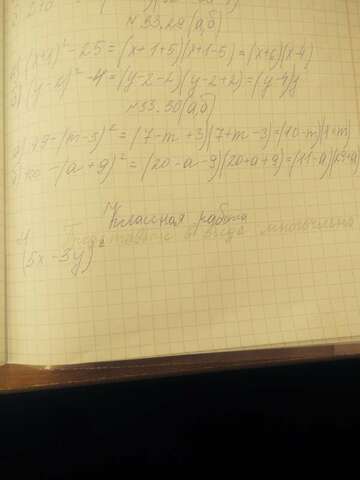 N 33.29 (а,б)
а) (x+1)² - 25 = (x+1+5)(x+1-5) = (x+6)(x-4)
б) (y-2)² - 4 = (y-2-2)(y-2+2) = (y-4)y
N 33.30 (а,б)
а) 49-(m-3)² = (7-m+3)(7+m-3) = (10-m)(4+m)
б) 400-(a+9)² = (20-a-9)(20+a+9) = (11-a)(29+a)
Классная работа
Представьте в виде многочлена
(5x-3y)²